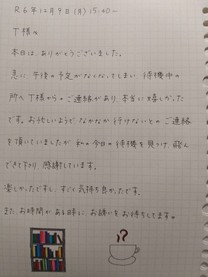 R6年12月9日(月)15:40~
T様へ
本日は、ありがとうございました。
急に午後の予定がなくなってしまい待機中の
所へT様からのご連絡があり、本当に嬉しかった
です。お忙しいようでなかなか行けないとのご連絡
を頂いていましたが私の今日の待機を見つけ、飛ん
できて下さり感謝しています。
楽しかったですし、すごく気持ち良かったです。
また、お時間がある時に、お誘いをお待ちしてます。